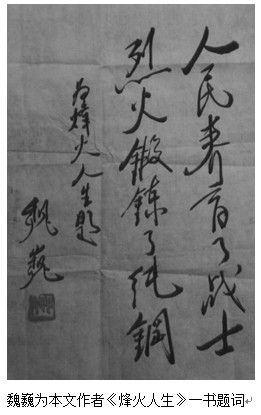 人民养育了战士
烈火锻鍊了纯钢
为烽火人生题
魏巍
魏巍为本文作者《烽火人生》一书题词